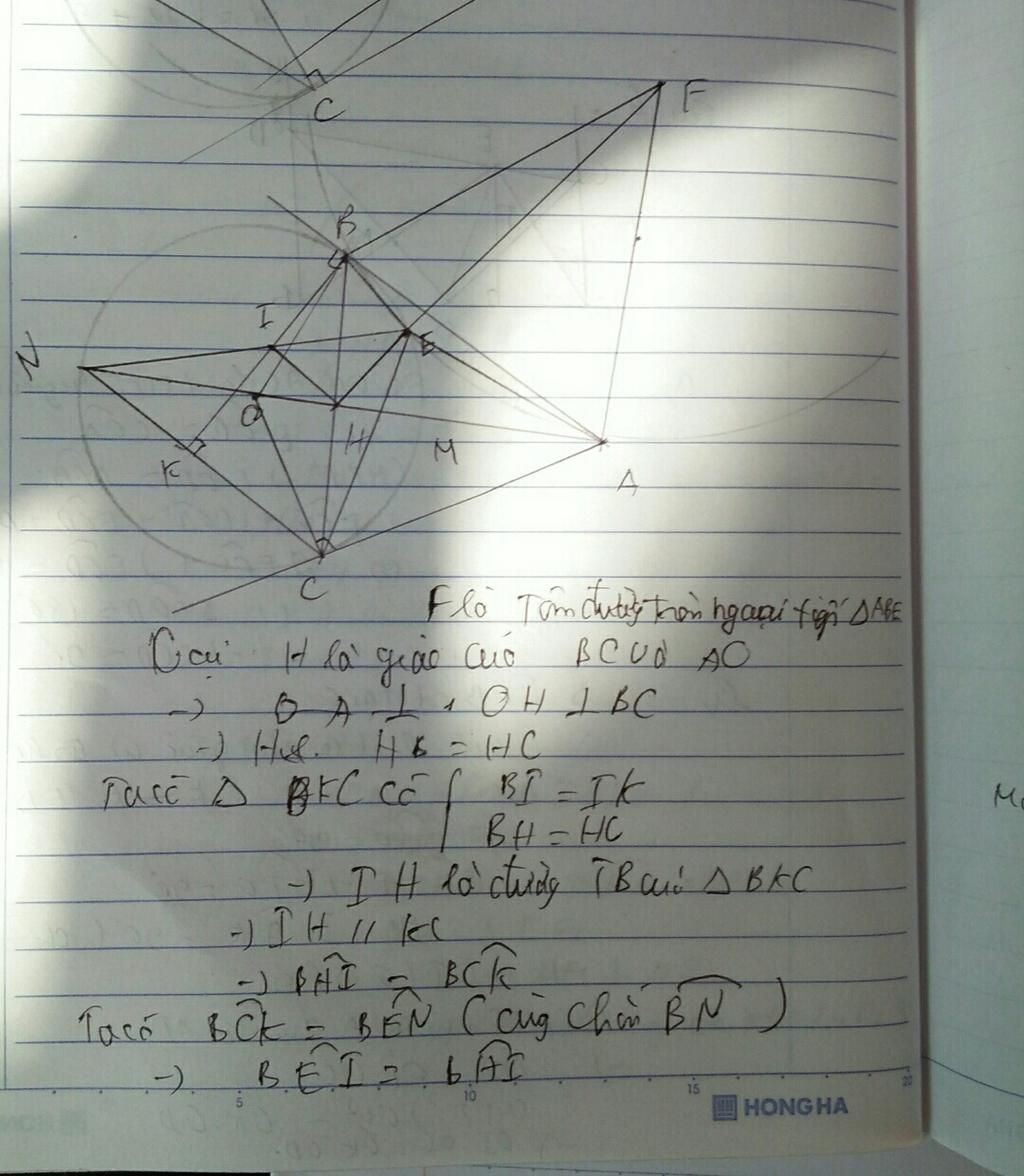 C
F
B
I
E
N
O
H
M
K
A
C
F là Tâm đường tròn ngoại tiếp ΔABE
Gọi H là giao của BC và AO
→ OA ⊥ , OH ⊥ BC
→ HB = HC
Ta có Δ BKC có { BI = IK
BH = HC
→ IH là đường TB của Δ BKC
→ IH // KC
→ BHI = BCK
Ta có BCK = BEN ( cùng chắn BN )
→ BEI = BHI
5 10 15 20
HONG HA